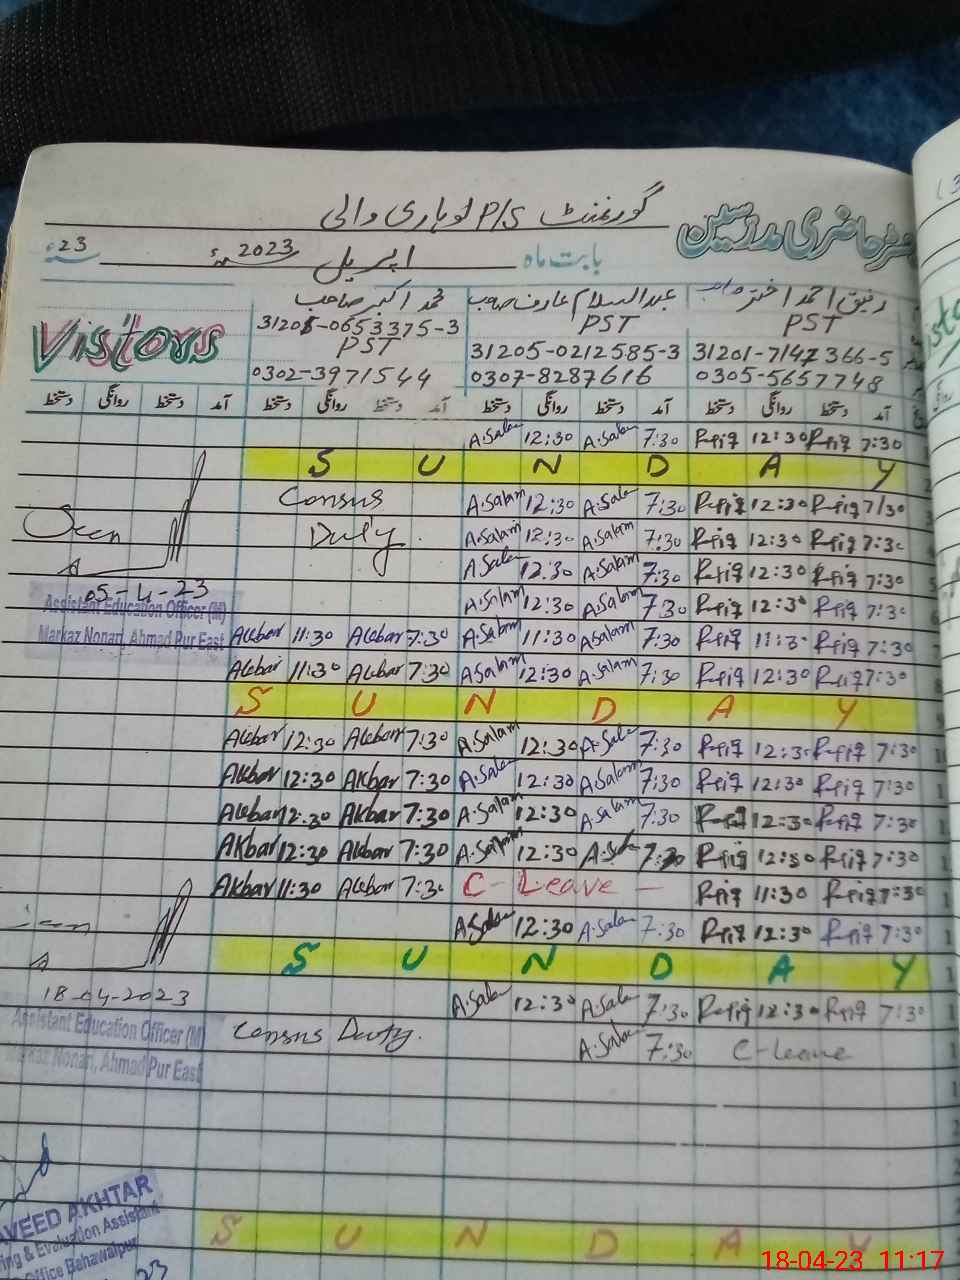 گورنمنٹ P/S لوہاری والی
رجسٹر حاضری مدرسین
بابت ماہ اپریل 2023ء 23ء
رفیق احمد اختر صاحب عبدالسلام عارف صاحب محمد اکبر صاحب
PST PST 31205-0653375-3
Visitors PST
31201-7147366-5 31205-0212585-3
0305-5657748 0307-8287616 0302-3971544
آمد دستخط روانگی دستخط آمد دستخط روانگی دستخط آمد دستخط روانگی دستخط آمد دستخط روانگی دستخط
A.Salam 12:30 A.Salam 7:30 Rfiq 12:30 Rfiq 7:30
S U N D A Y
Census A.Salam 12:30 A.Salam 7:30 Rfiq 12:30 Rfiq 7/30
Seen Duty A.Salam 12:30 A.Salam 7:30 Rfiq 12:30 Rfiq 7:30
A.Salam 12:30 A.Salam 7:30 Rfiq 12:30 Rfiq 7:30
05-4-23 A.Salam 12:30 A.Salam 7:30 Rfiq 12:30 Rfiq 7:30
Assistant Education Officer (M)
Markaz Nonari, Ahmad Pur East
Akbar 11:30 Akbar 7:30 A.Salam 11:30 A.Salam 7:30 Rfiq 11:30 Rfiq 7:30
Akbar 11:30 Akbar 7:30 A.Salam 12:30 A.Salam 7:30 Rfiq 12:30 Rfiq 7:30
S U N D A Y
Akbar 12:30 Akbar 7:30 A.Salam 12:30 A.Salam 7:30 Rfiq 12:30 Rfiq 7:30
Akbar 12:30 Akbar 7:30 A.Salam 12:30 A.Salam 7:30 Rfiq 12:30 Rfiq 7:30
Akbar 12:30 Akbar 7:30 A.Salam 12:30 A.Salam 7:30 Rfiq 12:30 Rfiq 7:30
Akbar 12:30 Akbar 7:30 A.Salam 12:30 A.Salam 7:30 Rfiq 12:30 Rfiq 7:30
Akbar 11:30 Akbar 7:30 C-Leave - Rfiq 11:30 Rfiq 7:30
Seen A.Salam 12:30 A.Salam 7:30 Rfiq 12:30 Rfiq 7:30
S U N D A Y
18-04-2023 A.Salam 12:30 A.Salam 7:30 Rfiq 12:30 Rfiq 7:30
Assistant Education Officer (M)
Markaz Nonari, Ahmad Pur East
Census Duty. A.Salam 7:30 C-leave
AVEED AKHTAR
ing & Evaluation Assistant
Office Bahawalpur
23
S U N D A Y
18-04-23 11:17